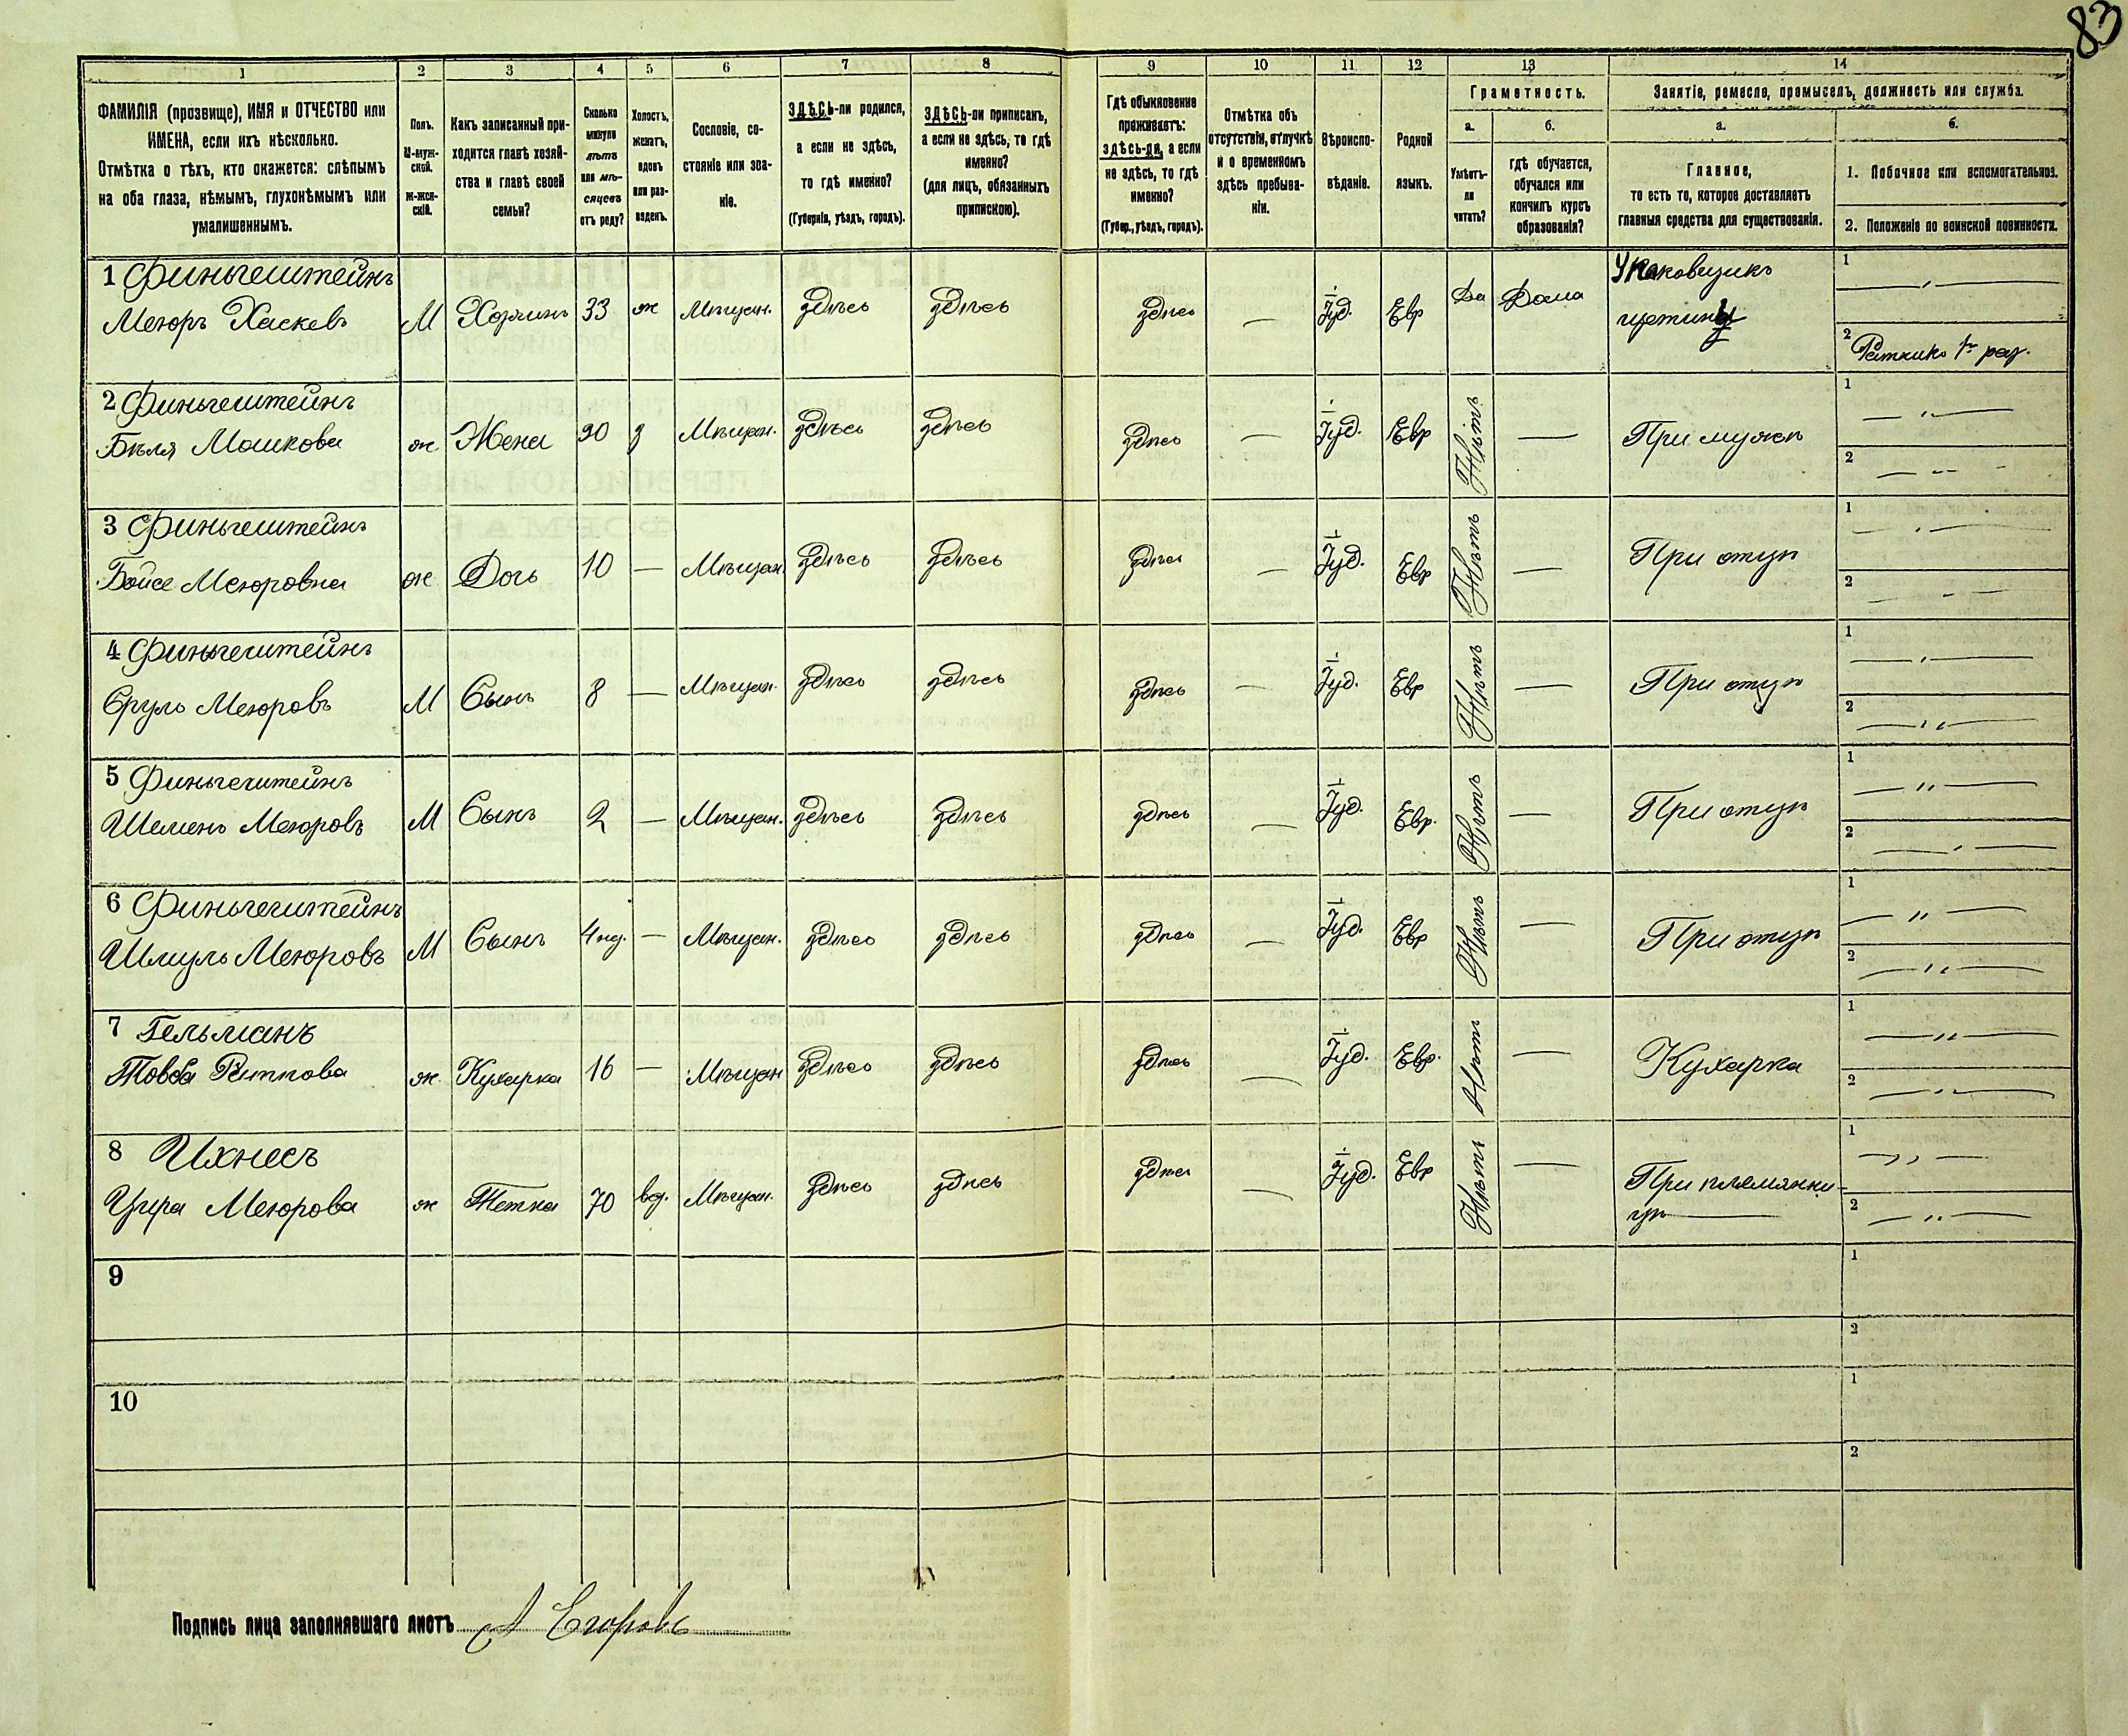 83
1 2 3 4 5 6 7 8 9 10 11 12 13 14
ФАМИЛІЯ (прозвище), ИМЯ и ОТЧЕСТВО или
ИМЕНА, если ихъ нѣсколько.
Отмѣтка о тѣхъ, кто окажется: слѣпымъ
на оба глаза, нѣмымъ, глухонѣмымъ или
умалишеннымъ.
Полъ.
М-муж-
ской.
ж-жен-
скій.
Какъ записанный при-
ходится главѣ хозяй-
ства и главѣ своей
семьи?
Сколько
минуло
лѣтъ
или мѣ-
сяцевъ
отъ роду?
Холостъ,
женатъ,
вдовъ
или раз-
веденъ.
Сословіе, со-
стояніе или зва-
ніе.
ЗДѢСЬ-ли родился,
а если не здѣсь,
то гдѣ именно?
(Губернія, уѣздъ, городъ).
ЗДѢСЬ-ли приписанъ,
а если не здѣсь, то гдѣ
именно?
(для лицъ, обязанныхъ
припискою).
Гдѣ обыкновенно
проживаетъ:
здѣсь-ли, а если
не здѣсь, то гдѣ
именно?
(Губер., уѣздъ, городъ).
Отмѣтка объ
отсутствіи, отлучкѣ
и о временномъ
здѣсь пребыва-
ніи.
Вѣроиспо-
вѣданіе.
Родной
языкъ.
Грамотность.
а.
Умѣетъ-
ли
читать?
б.
гдѣ обучается,
обучался или
кончилъ курсъ
образованія?
Занятіе, ремесло, промыселъ, должность или служба.
а.
Главное,
то есть то, которое доставляетъ
главныя средства для существованія.
б.
1. Побочное или вспомогательное.
2. Положеніе по воинской повинности.
1 Финьгештейнъ
Меюръ Хаскевъ М Хозяинъ 33 ж Мѣщан. здѣсь здѣсь здѣсь — Іуд. Евр Да Дома Упаковщикъ
щетины
1 — 2 Ратникъ 1го раз.
2 Финьгештейнъ
Бѣля Мошкова ж Жена 30 з Мѣщан. здѣсь здѣсь здѣсь — Іуд. Евр Нѣтъ — При мужѣ 1 — 2 —
3 Финьгештейнъ
Бейсе Меюровна ж Дочь 10 — Мѣщан. здѣсь здѣсь здѣсь — Іуд. Евр Нѣтъ — При отцѣ 1 — 2 —
4 Финьгештейнъ
Сруль Меюровъ М Сынъ 8 — Мѣщан. здѣсь здѣсь здѣсь — Іуд. Евр Нѣтъ — При отцѣ 1 — 2 —
5 Финьгештейнъ
Шлемень Меюровъ М Сынъ 2 — Мѣщан. здѣсь здѣсь здѣсь — Іуд. Евр. Нѣтъ — При отцѣ 1 — 2 —
6 Финьгештейнъ
Шмуль Меюровъ М Сынъ 4 нд. — Мѣщан. здѣсь здѣсь здѣсь — Іуд. Евр Нѣтъ — При отцѣ 1 — 2 —
7 Гельманъ
Товба ж. Кухарка 16 — Мѣщан здѣсь здѣсь здѣсь — Іуд. Евр. Нѣт — Кухарка 1 — 2 —
8 Ихнесъ
Меюрова ж Тетка 70 вд. Мѣщан. здѣсь здѣсь здѣсь — Іуд. Евр Нѣтъ — При племянни-
цѣ 1 — 2 —
9 1 2
10 1 2
Подпись лица заполнявшаго листъ А Егоровъ